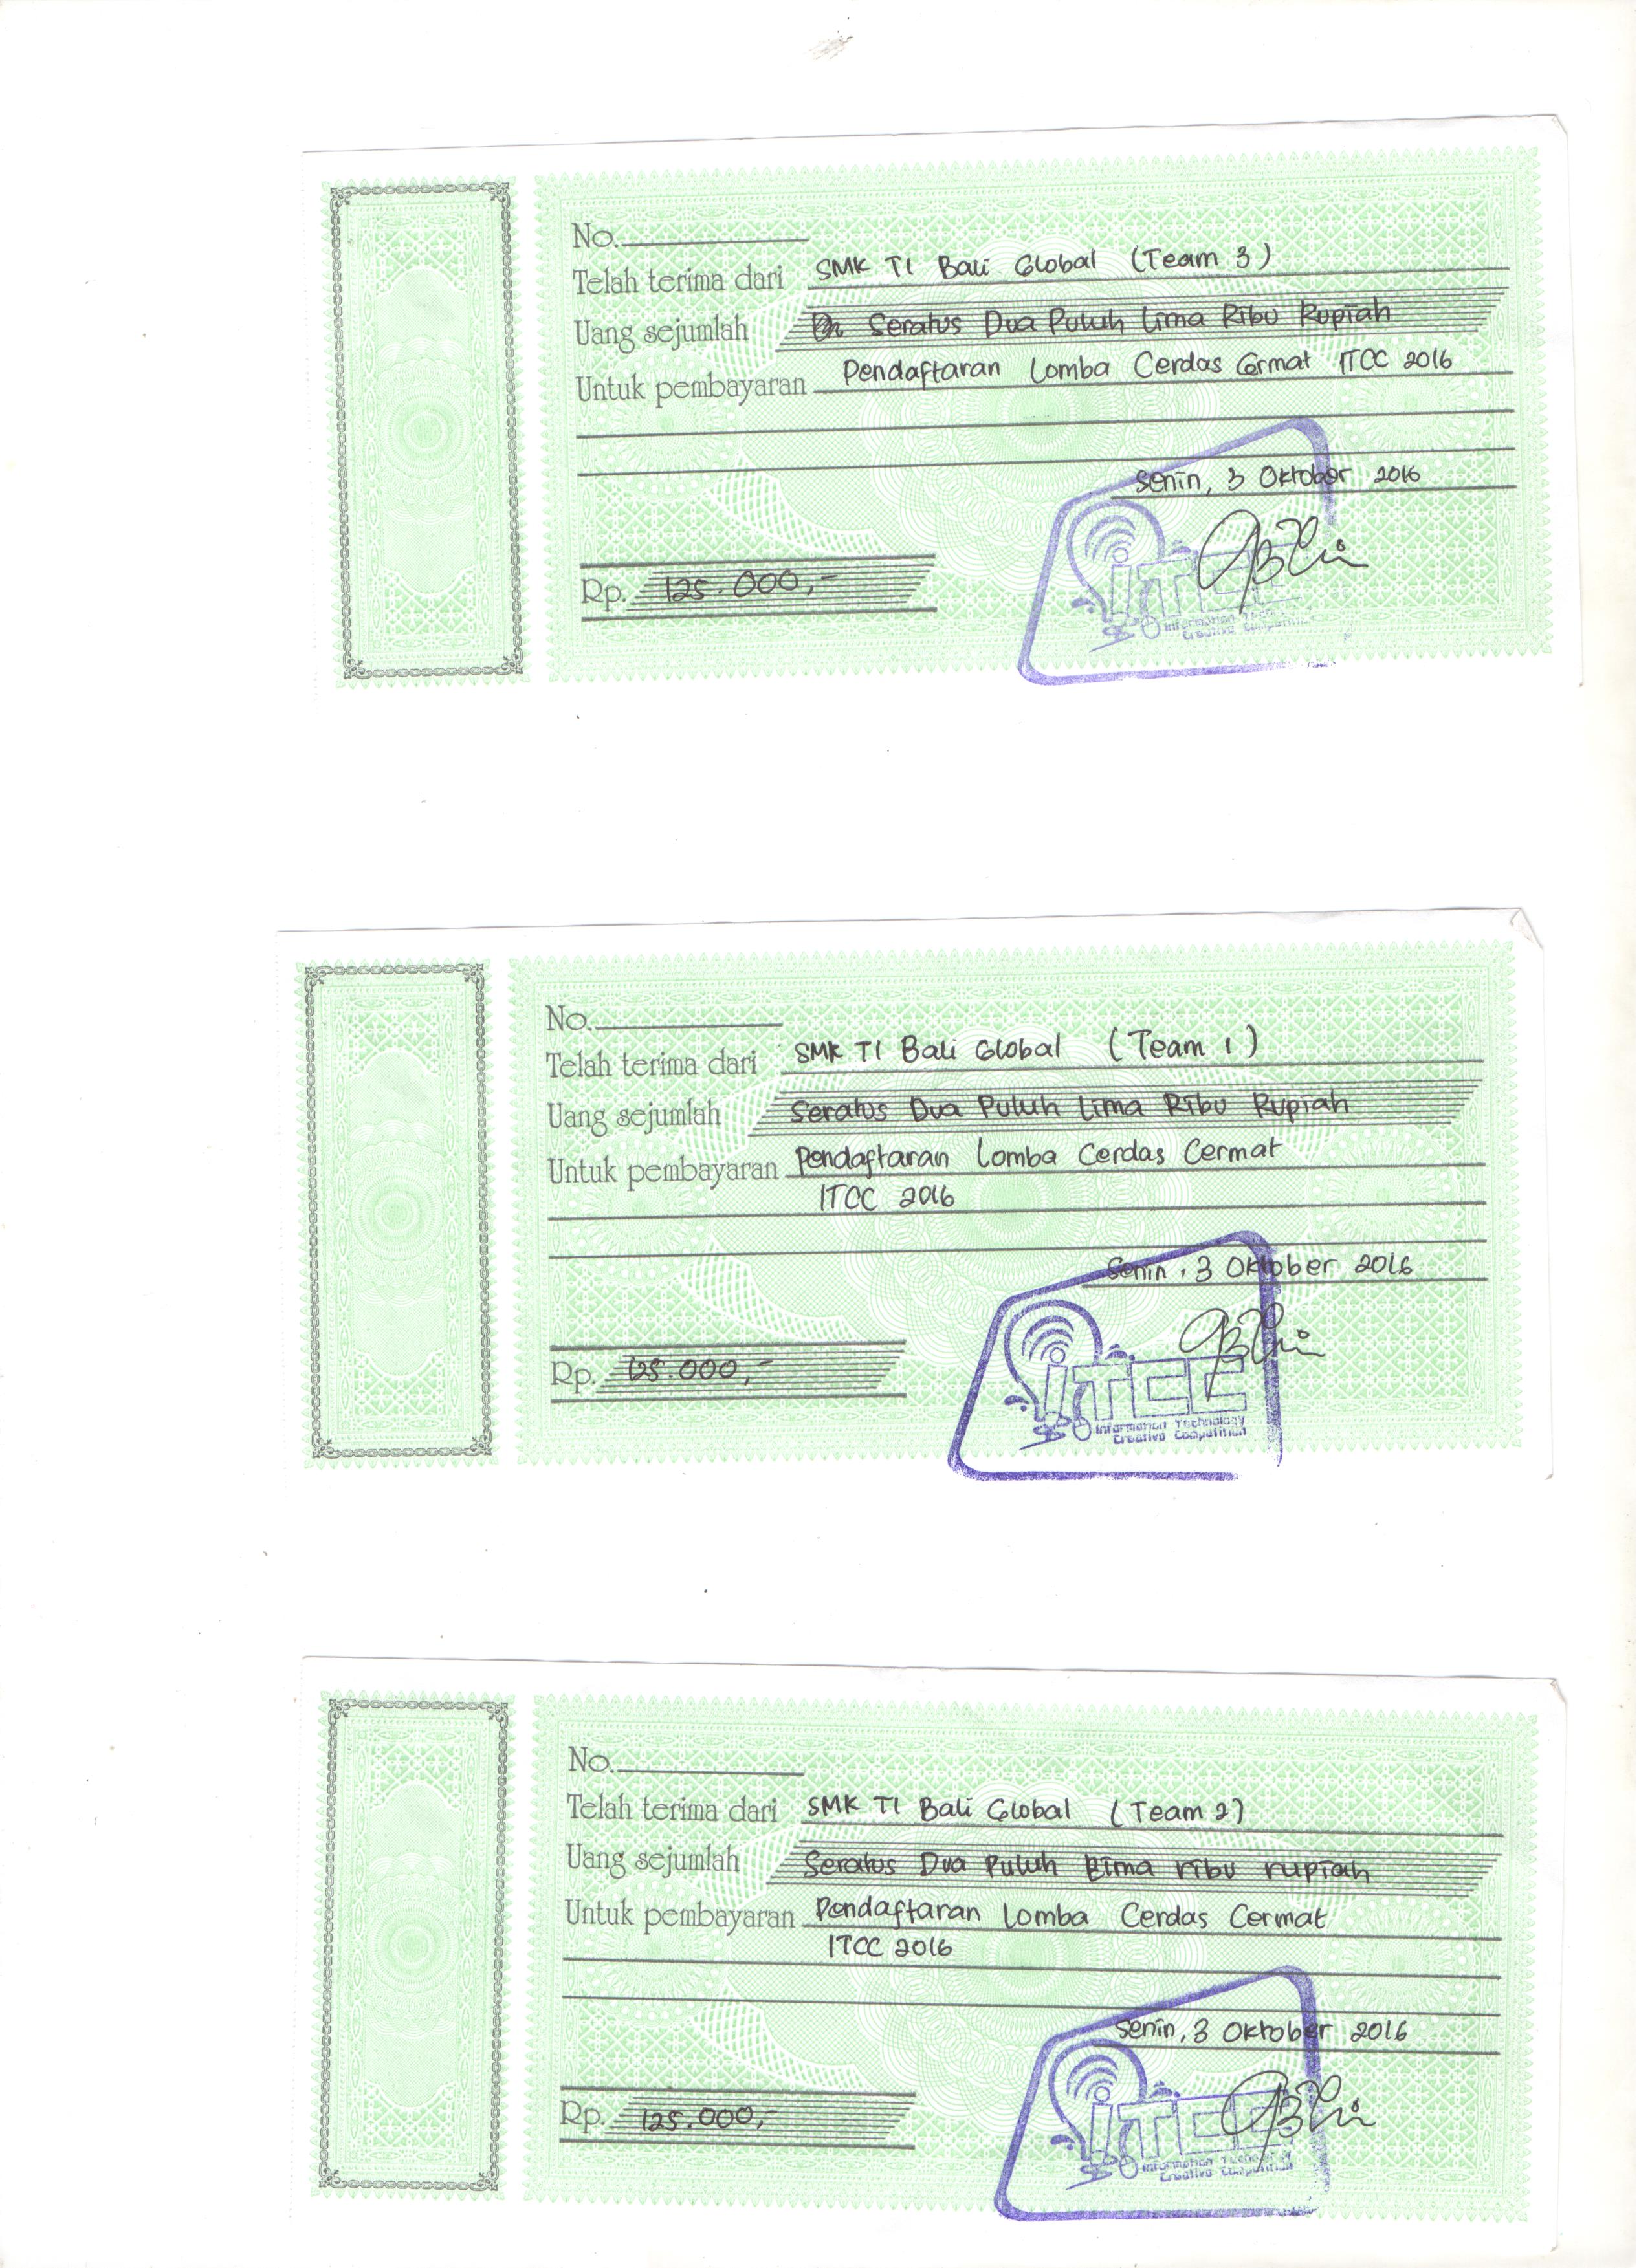 No.
Telah terima dari SMK TI Bali Global (Team 3)
Uang sejumlah Seratus Dua Puluh Lima Ribu Rupiah
Untuk pembayaran Pendaftaran Lomba Cerdas Cermat ITCC 2016
Senin, 3 Oktober 2016
Rp. 125.000,-
ITCC
Information
Creative
No.
Telah terima dari SMK TI Bali Global (Team 1)
Uang sejumlah Seratus Dua Puluh Lima Ribu Rupiah
Untuk pembayaran Pendaftaran Lomba Cerdas Cermat
ITCC 2016
Senin, 3 Oktober 2016
Rp. 125.000,-
ITCC
Information Technology
Creative Competition
No.
Telah terima dari SMK TI Bali Global (Team 2)
Uang sejumlah Seratus Dua Puluh Lima ribu rupiah
Untuk pembayaran Pendaftaran Lomba Cerdas Cermat
ITCC 2016
Senin, 3 Oktober 2016
Rp. 125.000,-
ITCC
Information Technology
Creative Competition